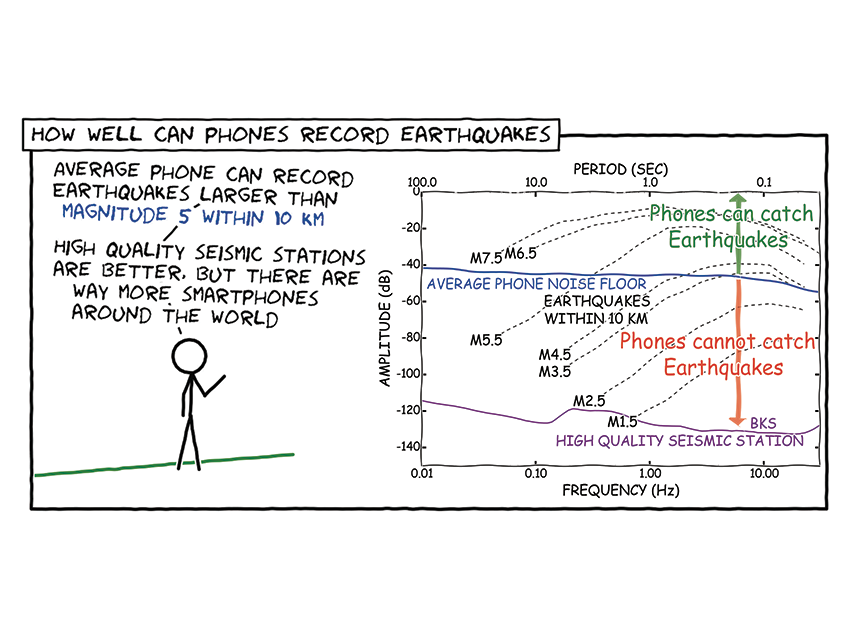 HOW WELL CAN PHONES RECORD EARTHQUAKES
AVERAGE PHONE CAN RECORD
EARTHQUAKES LARGER THAN
MAGNITUDE 5 WITHIN 10 KM
HIGH QUALITY SEISMIC STATIONS
ARE BETTER, BUT THERE ARE
WAY MORE SMARTPHONES
AROUND THE WORLD
PERIOD (SEC)
100.0 10.0 1.0 0.1
AMPLITUDE (dB)
0
-20
-40
-60
-80
-100
-120
-140
Phones can catch
Earthquakes
M7.5 M6.5
AVERAGE PHONE NOISE FLOOR
EARTHQUAKES
WITHIN 10 KM
M5.5
Phones cannot catch
Earthquakes
M4.5
M3.5
M2.5
M1.5
BKS
HIGH QUALITY SEISMIC STATION
0.01 0.10 1.00 10.00
FREQUENCY (Hz)